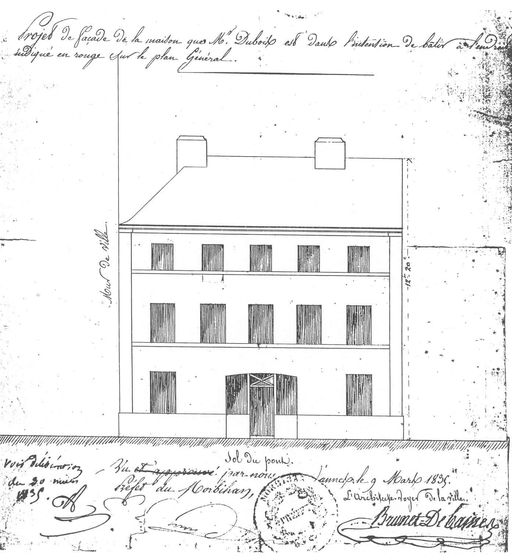 Projet de façade de la maison que Mr. Dubois est dans l'intention de bâtir à l'endroit
indiqué en rouge sur le plan Général.
Mur de Ville
12m 20c
Sol du pont.
voir délibération
du 20 mars
1835.
Vu et approuvé par nous
Préfet du Morbihan
Vannes, le 9 Mars 1835.
L'Architecte-Voyer de la ville.
Brunet Debaines